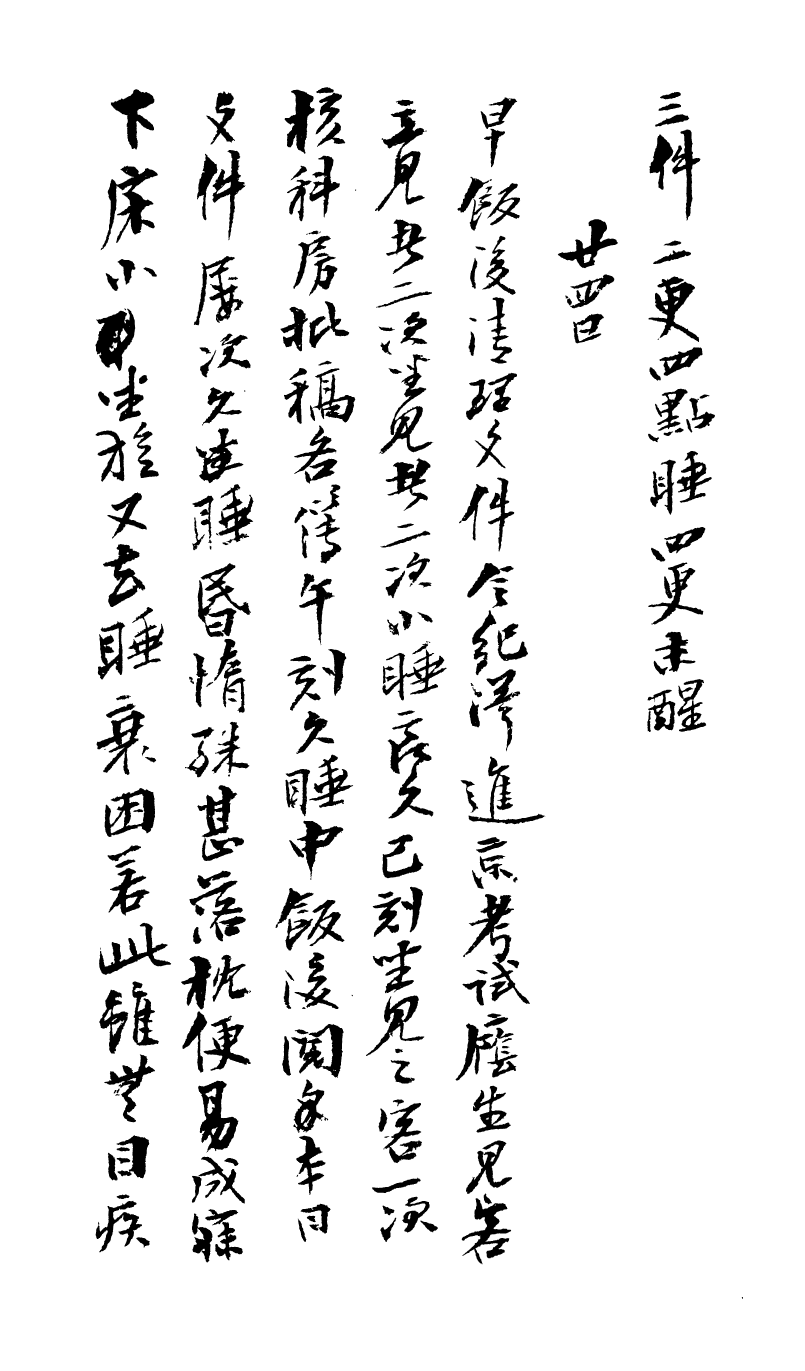 三件二更四點睡四更未醒
廿四日
早飯後清理文件令紀澤進京考試廕生見客
立見者二次坐見者二次小睡良久已刻坐見之客一次
核科房批稿各簿午刻久睡中飯後閱本日
文件屢次久睡昏惰殊甚落枕便易成寐
下床小坐旋又去睡衰困若此雖無目疾